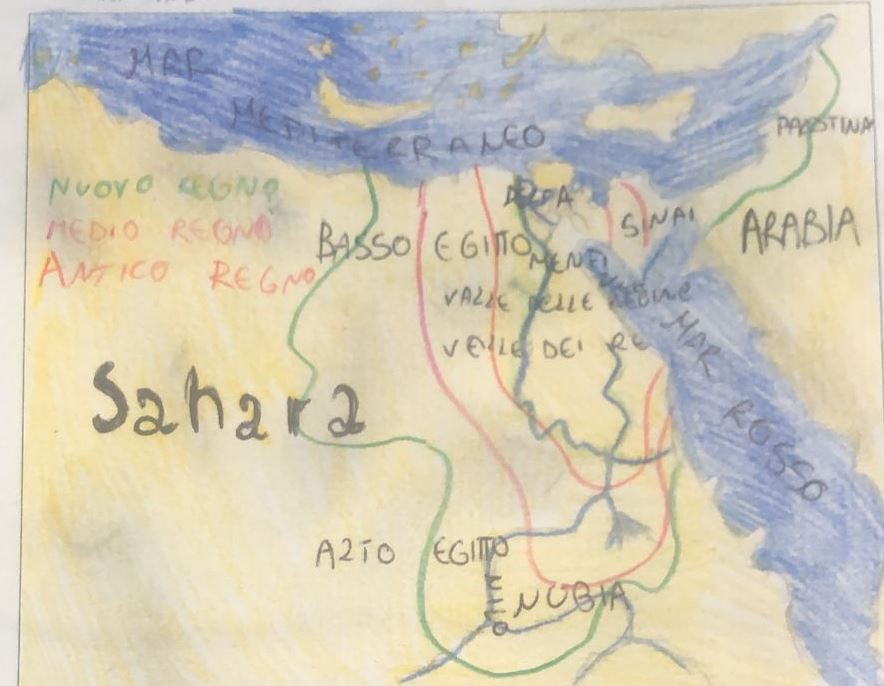 MAR
MEDITERRANEO
PALESTINA
NUOVO REGNO
MEDIO REGNO
ANTICO REGNO
DELTA
SINAI
ARABIA
BASSO EGITTO
MENFI
VALLE DELLE REGINE
VALLE DEI RE
MAR ROSSO
Sahara
A2TO EGITTO
NILO
NUBIA